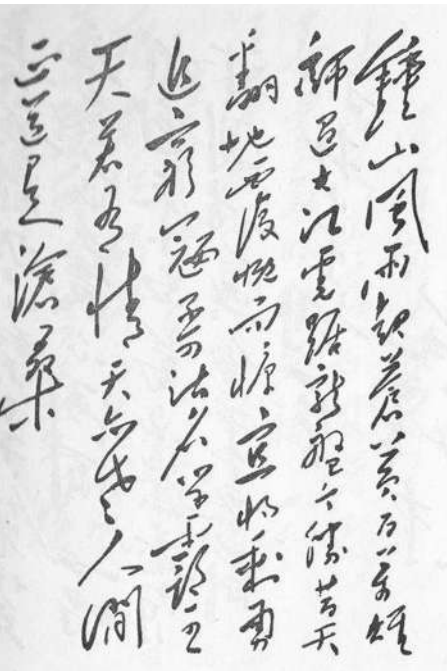 鐘山風雨起蒼黃百萬雄
師過大江虎踞龍盤今勝昔天
翻地覆慨而慷宜將剩勇
追窮寇不可沽名學霸王
天若有情天亦老人間
正道是滄桑